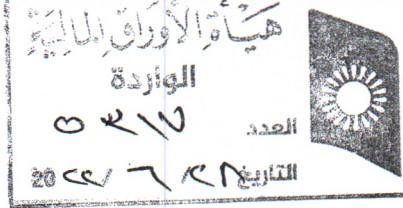 هيأة الأوراق المالية
الواردة
العدد
التاريخ ٢٨/ ٦ /20٢٢